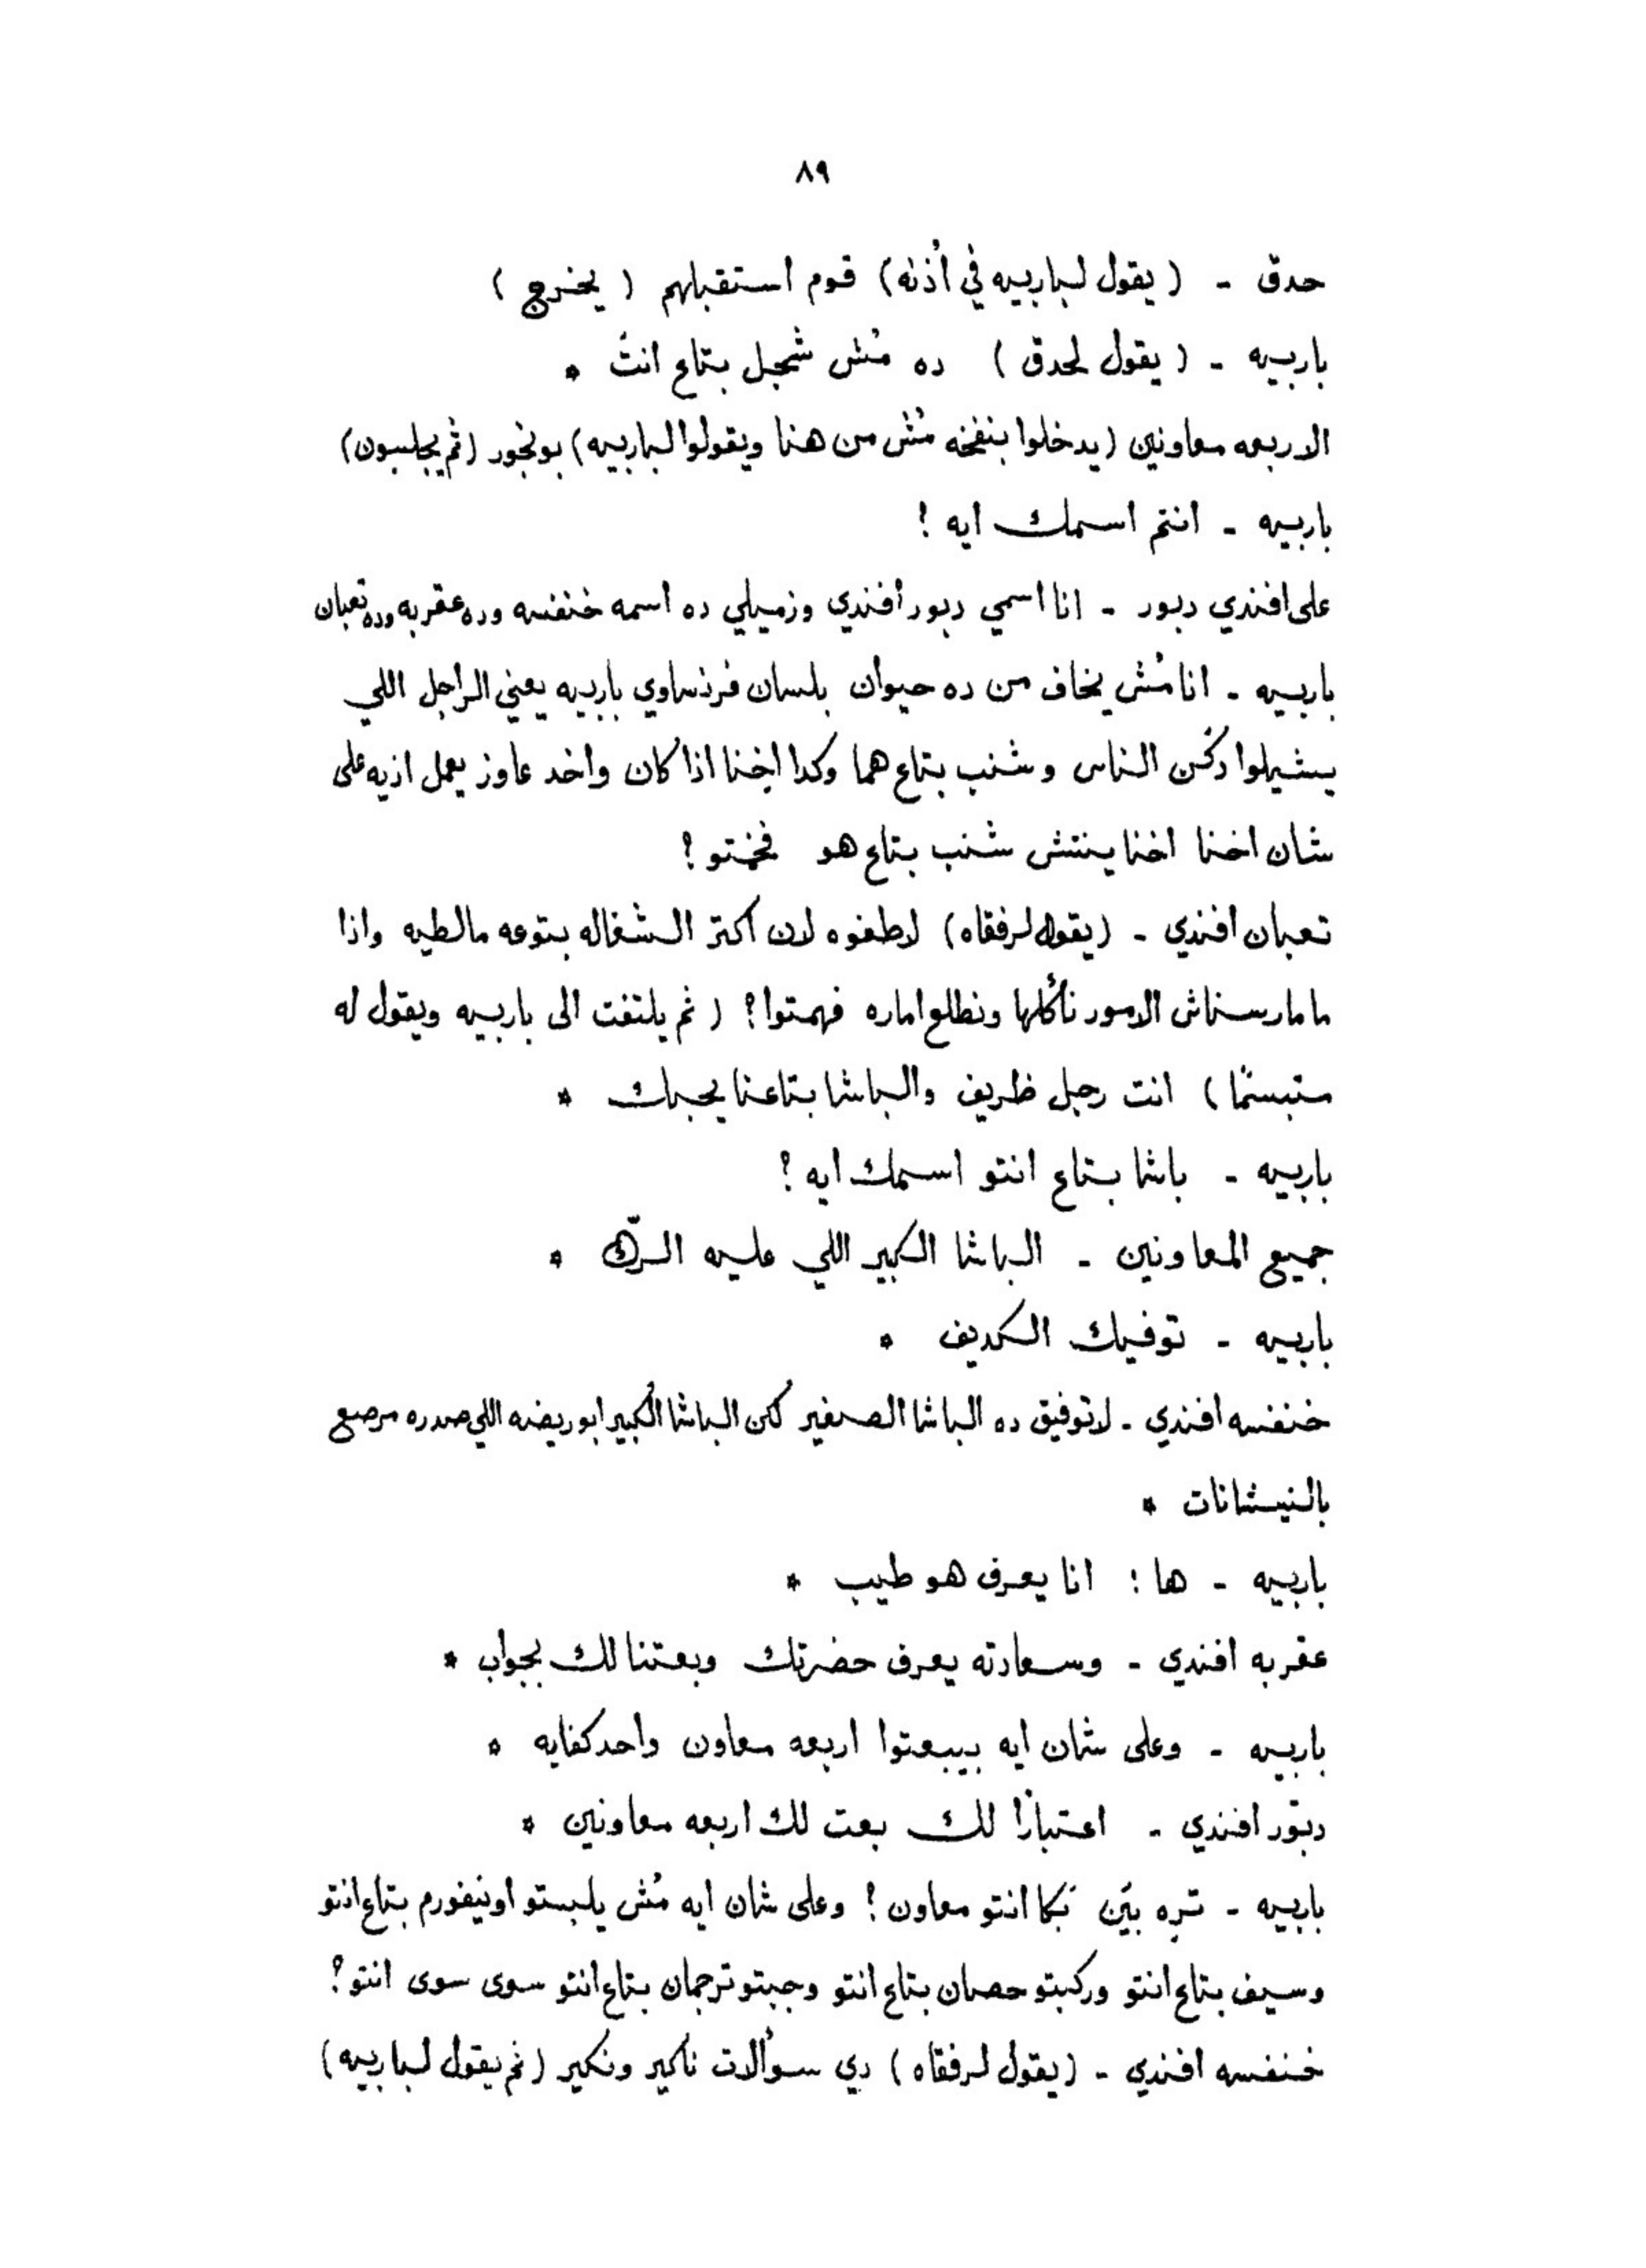 ٨٩
حدق - (يقول لباربيه في أُذنه) قوم استقبلهم (يخرج)
باربيه - (يقول لحدق) ده مُش شجل بتاع انتَ *
الاربعه معاونين (يدخلوا بنفخه مُش من هنا ويقولوا لباربيه) بونجور (ثم يجلسون)
باربيه - انتم اسمك ايه !
على افندي دبور - انا اسمي دبور أفندي وزميلي ده اسمه خنفسه وده عقربه وده تعبان
باربيه - انا مُش يخاف من ده حيوان بلسان فرنساوي باربيه يعني الراجل اللي
يشيلوا دكن الناس وشنب بتاع هما وكدا اخنا اذا كان واخد عاوز يعمل اذيه على
شان اخنا اخنا ينتش شنب بتاع هو فخمتو ؟
تعبان افندي - (يقول لرفقاه) لاطفوه لان اكتر الشغاله بتوعه مالطيه واذا
ما مارسناش الامور نأكلها ونطلع اماره فهمتوا ؟ (ثم يلتفت الى باربيه ويقول له
متبسمًا) انت رجل ظريف والباشا بتاعنا يحبك *
باربيه - باشا بتاع انتو اسمك ايه ؟
جميع المعاونين - الباشا الكبير اللي عليه الرّك *
باربيه - توفيك الكديف *
خنفسه افندي - لا توفيق ده الباشا الصغير لكن الباشا الكبير ابو ريضه اللي صدره مرصع
بالنيشانات *
باربيه - ها : انا يعرف هو طيب *
عقربه افندي - وسعادته يعرف حضرتك وبعتنا لك بجواب *
باربيه - وعلى شان ايه بيبعتوا اربعه معاون واحد كفايه *
دبّور افندي - اعتبارًا لك بعت لك اربعه معاونين *
باربيه - تره بيّن بكا انتو معاون ! وعلى شان ايه مُش يلبستو اونيفورم بتاع انتو
وسيف بتاع انتو وركبتو حصان بتاع انتو وجبتو ترجمان بتاع انتو سوى سوى انتو ؟
خنفسه افندي - (يقول لرفقاه) دي سوألات ناكير ونكير (ثم يقول لباربيه)